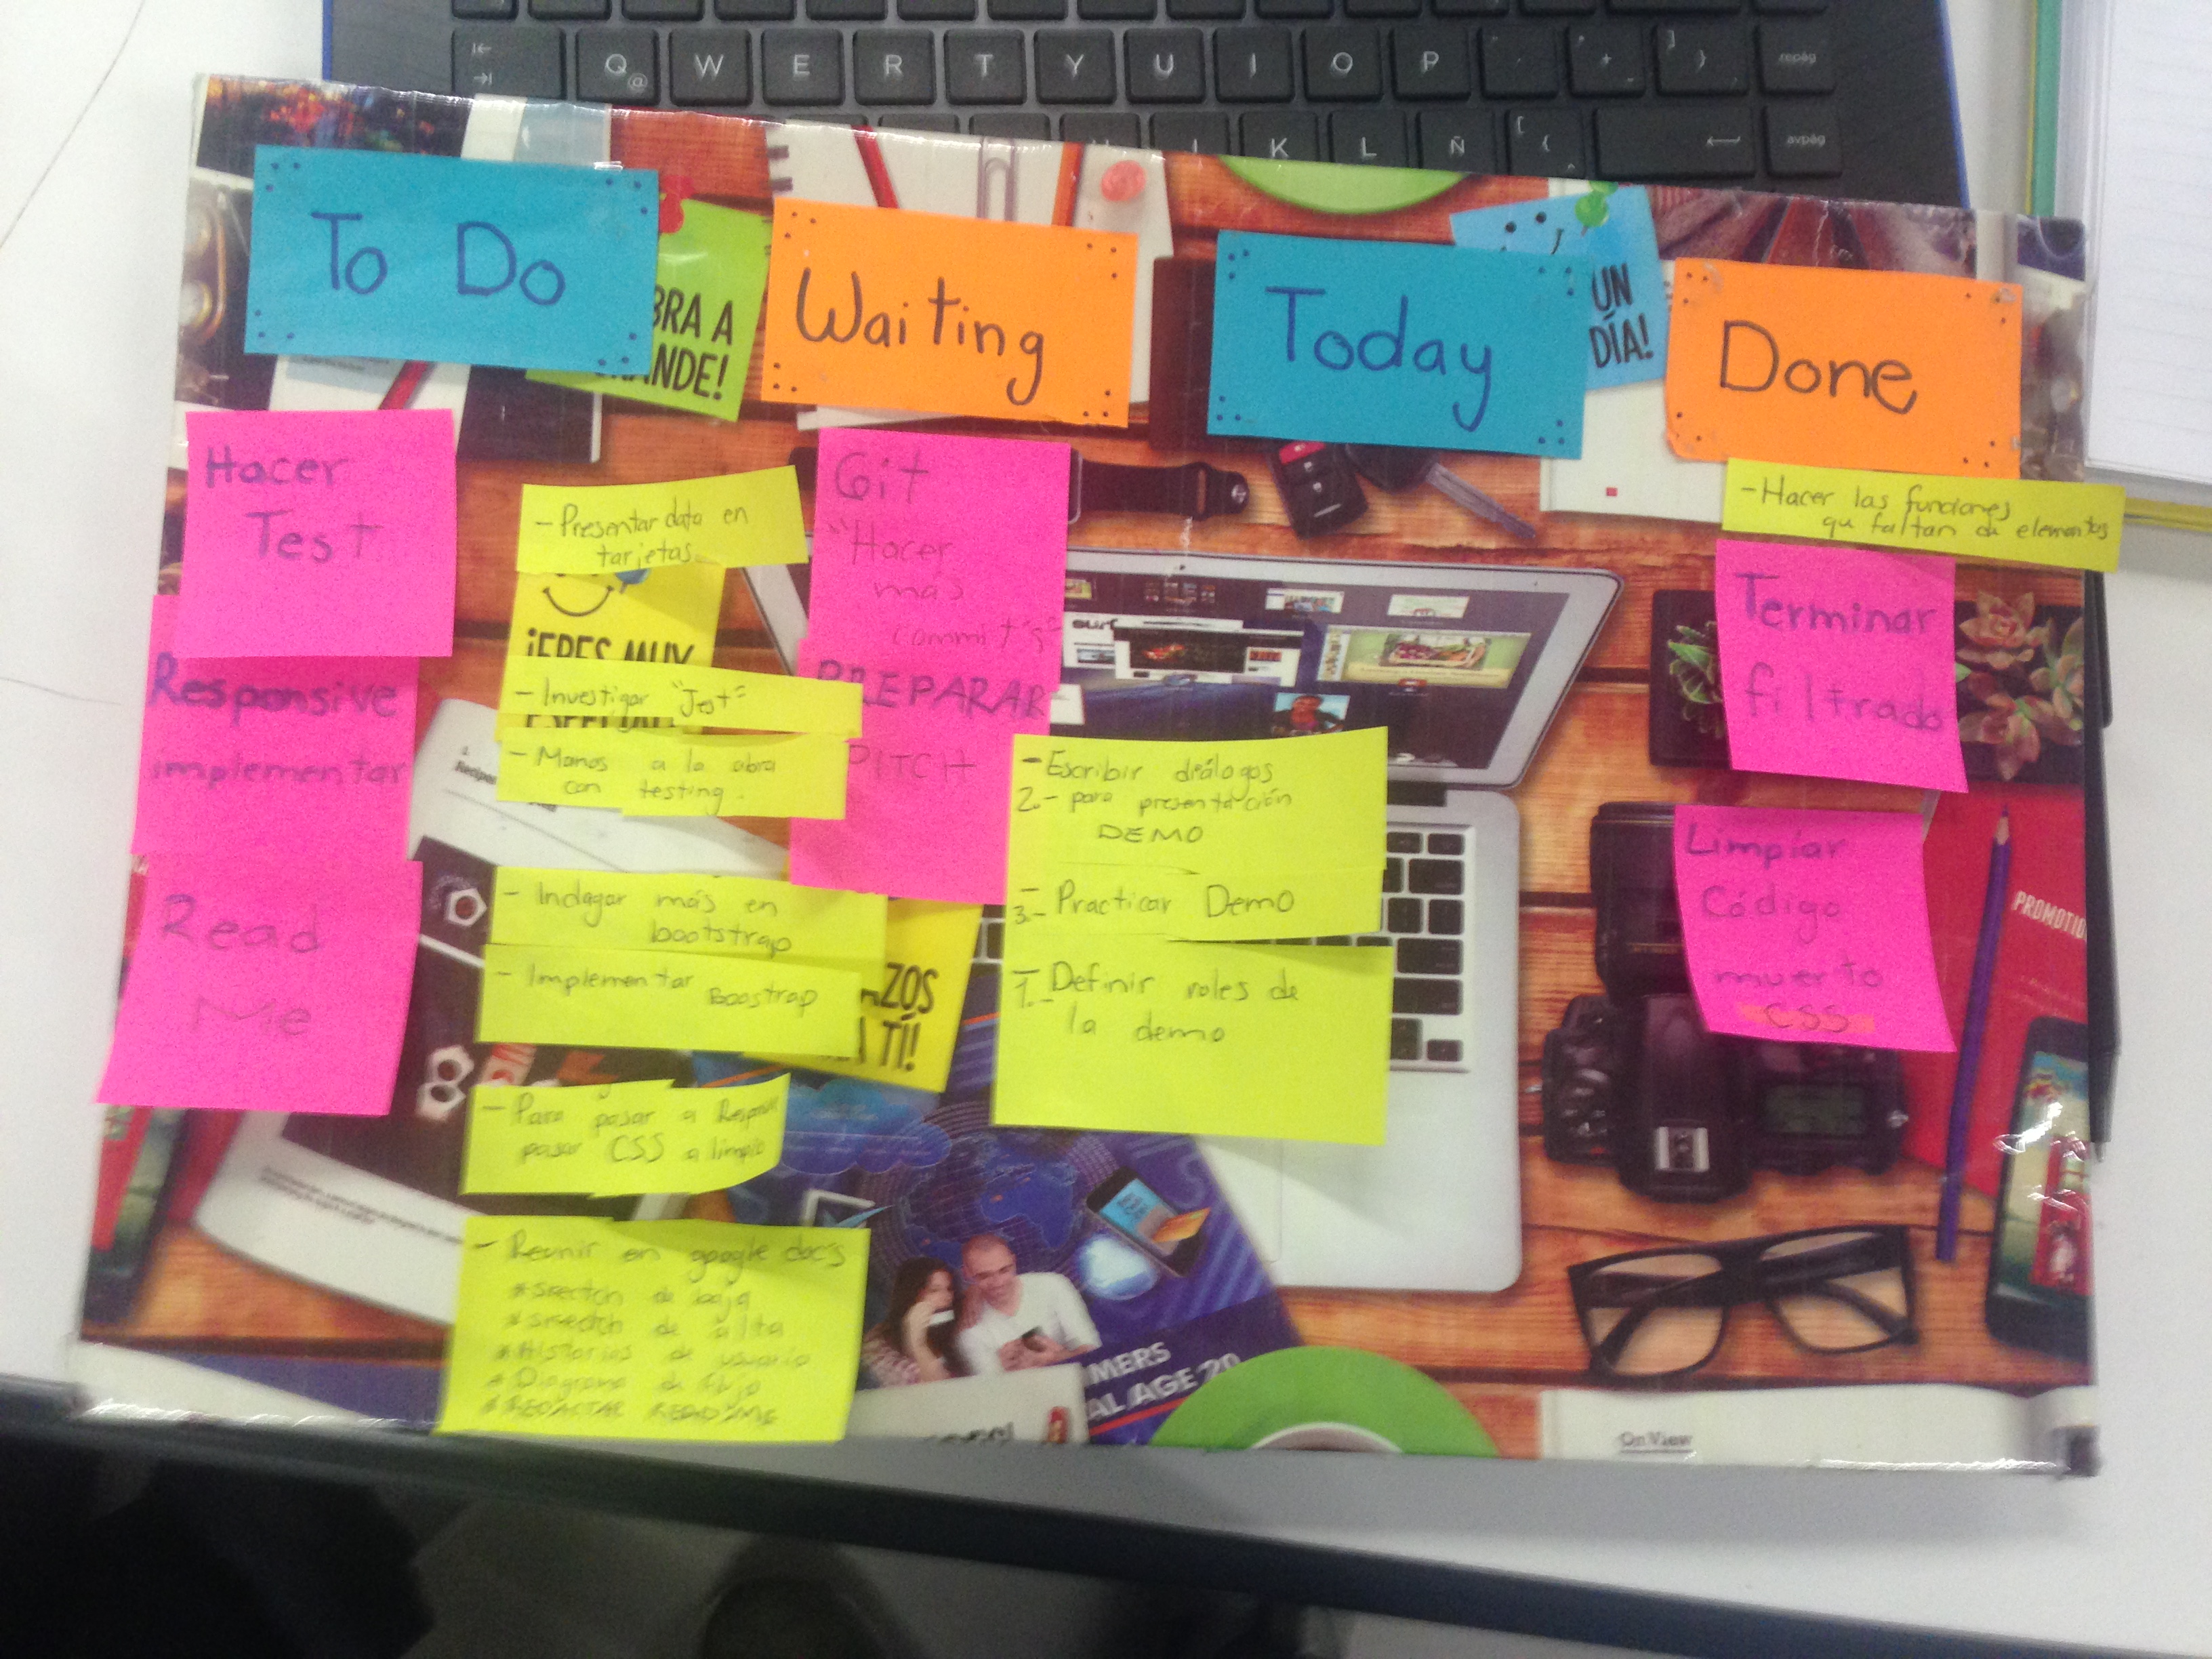 To Do
Hacer
Test
Responsive
implementar
Read
Me
- Presentar data en
tarjetas
- Investigar "Jest"
- Manos a la obra
con testing.
- Indagar más en
bootstrap
- Implementar Boostrap
- Para pasar a Repos
pasar CSS a limpio
- Reunir en google docs
* sketch de baja
* sketch de alta
* Historias de usuario
* Diagrama de flujo
* REDACTAR README
Waiting
Git
"Hacer
mas
commit's"
PREPARAR
PITCH
Today
- Escribir diálogos
2.- para presentación
DEMO
-
3.- Practicar Demo
- Definir roles de
1.- la demo
Done
- Hacer las funciones
qu faltan de elementos
Terminar
filtrado
Limpiar
Código
muerto
"CSS"
¡ERES MUY
BRA A
ANDE!
TI!
UN
DÍA!
MERS
AL AGE
On View
Q
@
W
E
R
T
Y
U
I
O
P
K
L
Ñ